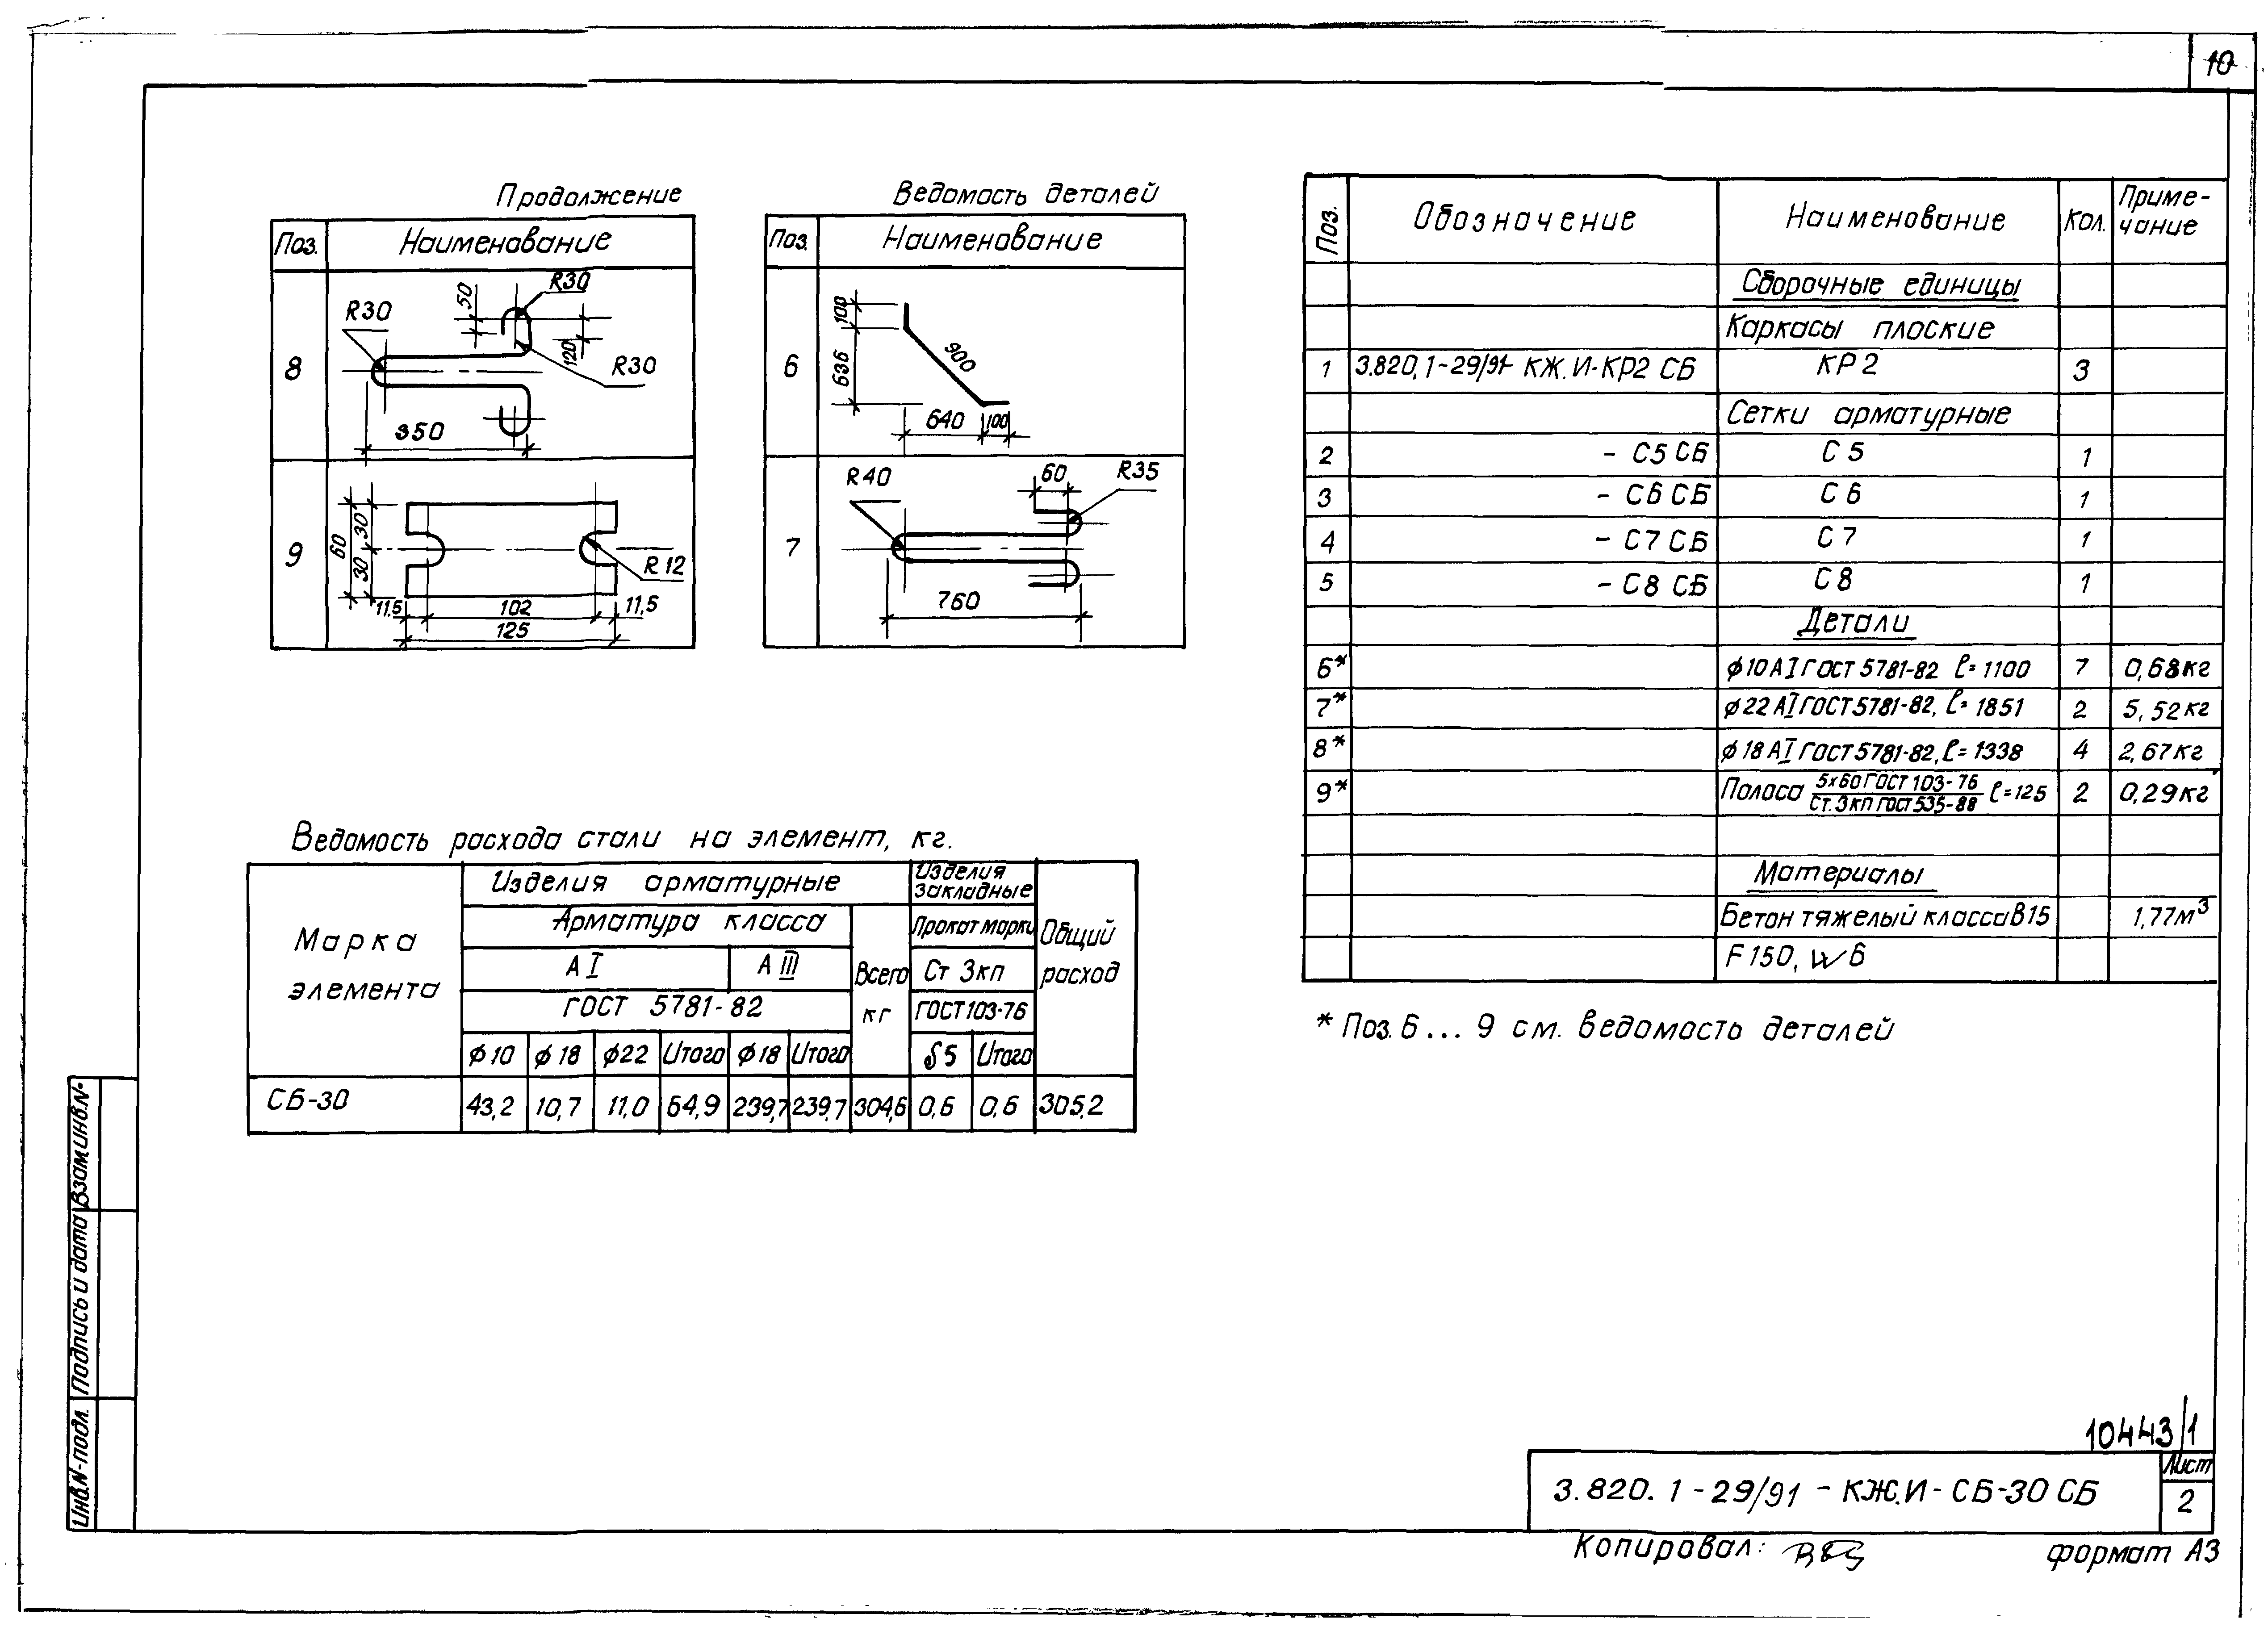 10
Продолжение
Поз. Наименование
8
R30
50
R30
120
R30
350
9
60
30
30
R12
11,5 102 11,5
125
Ведомость деталей
Поз. Наименование
6
100
636
900
640 100
7
R40
60
R35
760
Поз. Обозначение Наименование Кол. Приме-
чание
Сборочные единицы
Каркасы плоские
1 3.820.1-29/91- КЖ.И-КР2 СБ КР2 3
Сетки арматурные
2 - С5 СБ С5 1
3 - С6 СБ С6 1
4 - С7 СБ С7 1
5 - С8 СБ С8 1
Детали
6* ϕ10 АI ГОСТ 5781-82 ℓ=1100 7 0,68кг
7* ϕ22 АI ГОСТ 5781-82, ℓ=1851 2 5,52кг
8* ϕ18 АI ГОСТ 5781-82, ℓ=1338 4 2,67кг
9* Полоса 5х60 ГОСТ 103-76 / Ст.3кп ГОСТ 535-88 ℓ=125 2 0,29кг
Материалы
Бетон тяжелый класса В15 1,77м³
F150, W6
* Поз. 6... 9 см. ведомость деталей
Ведомость расхода стали на элемент, кг.
Марка
элемента
Изделия арматурные
Изделия
закладные
Арматура класса
Прокат марки
Общий
расход
АI АIII
Всего
кг
Ст 3кп
ГОСТ 5781-82
ГОСТ103-76
ϕ10 ϕ18 ϕ22 Итого ϕ18 Итого δ5 Итого
СБ-30 43,2 10,7 11,0 64,9 239,7 239,7 304,6 0,6 0,6 305,2
Взам.инв.N-
Подпись и дата
Инв.N-подл.
10443/1
3.820.1-29/91-КЖ.И-СБ-30 СБ
Лист
2
Копировал:
формат А3